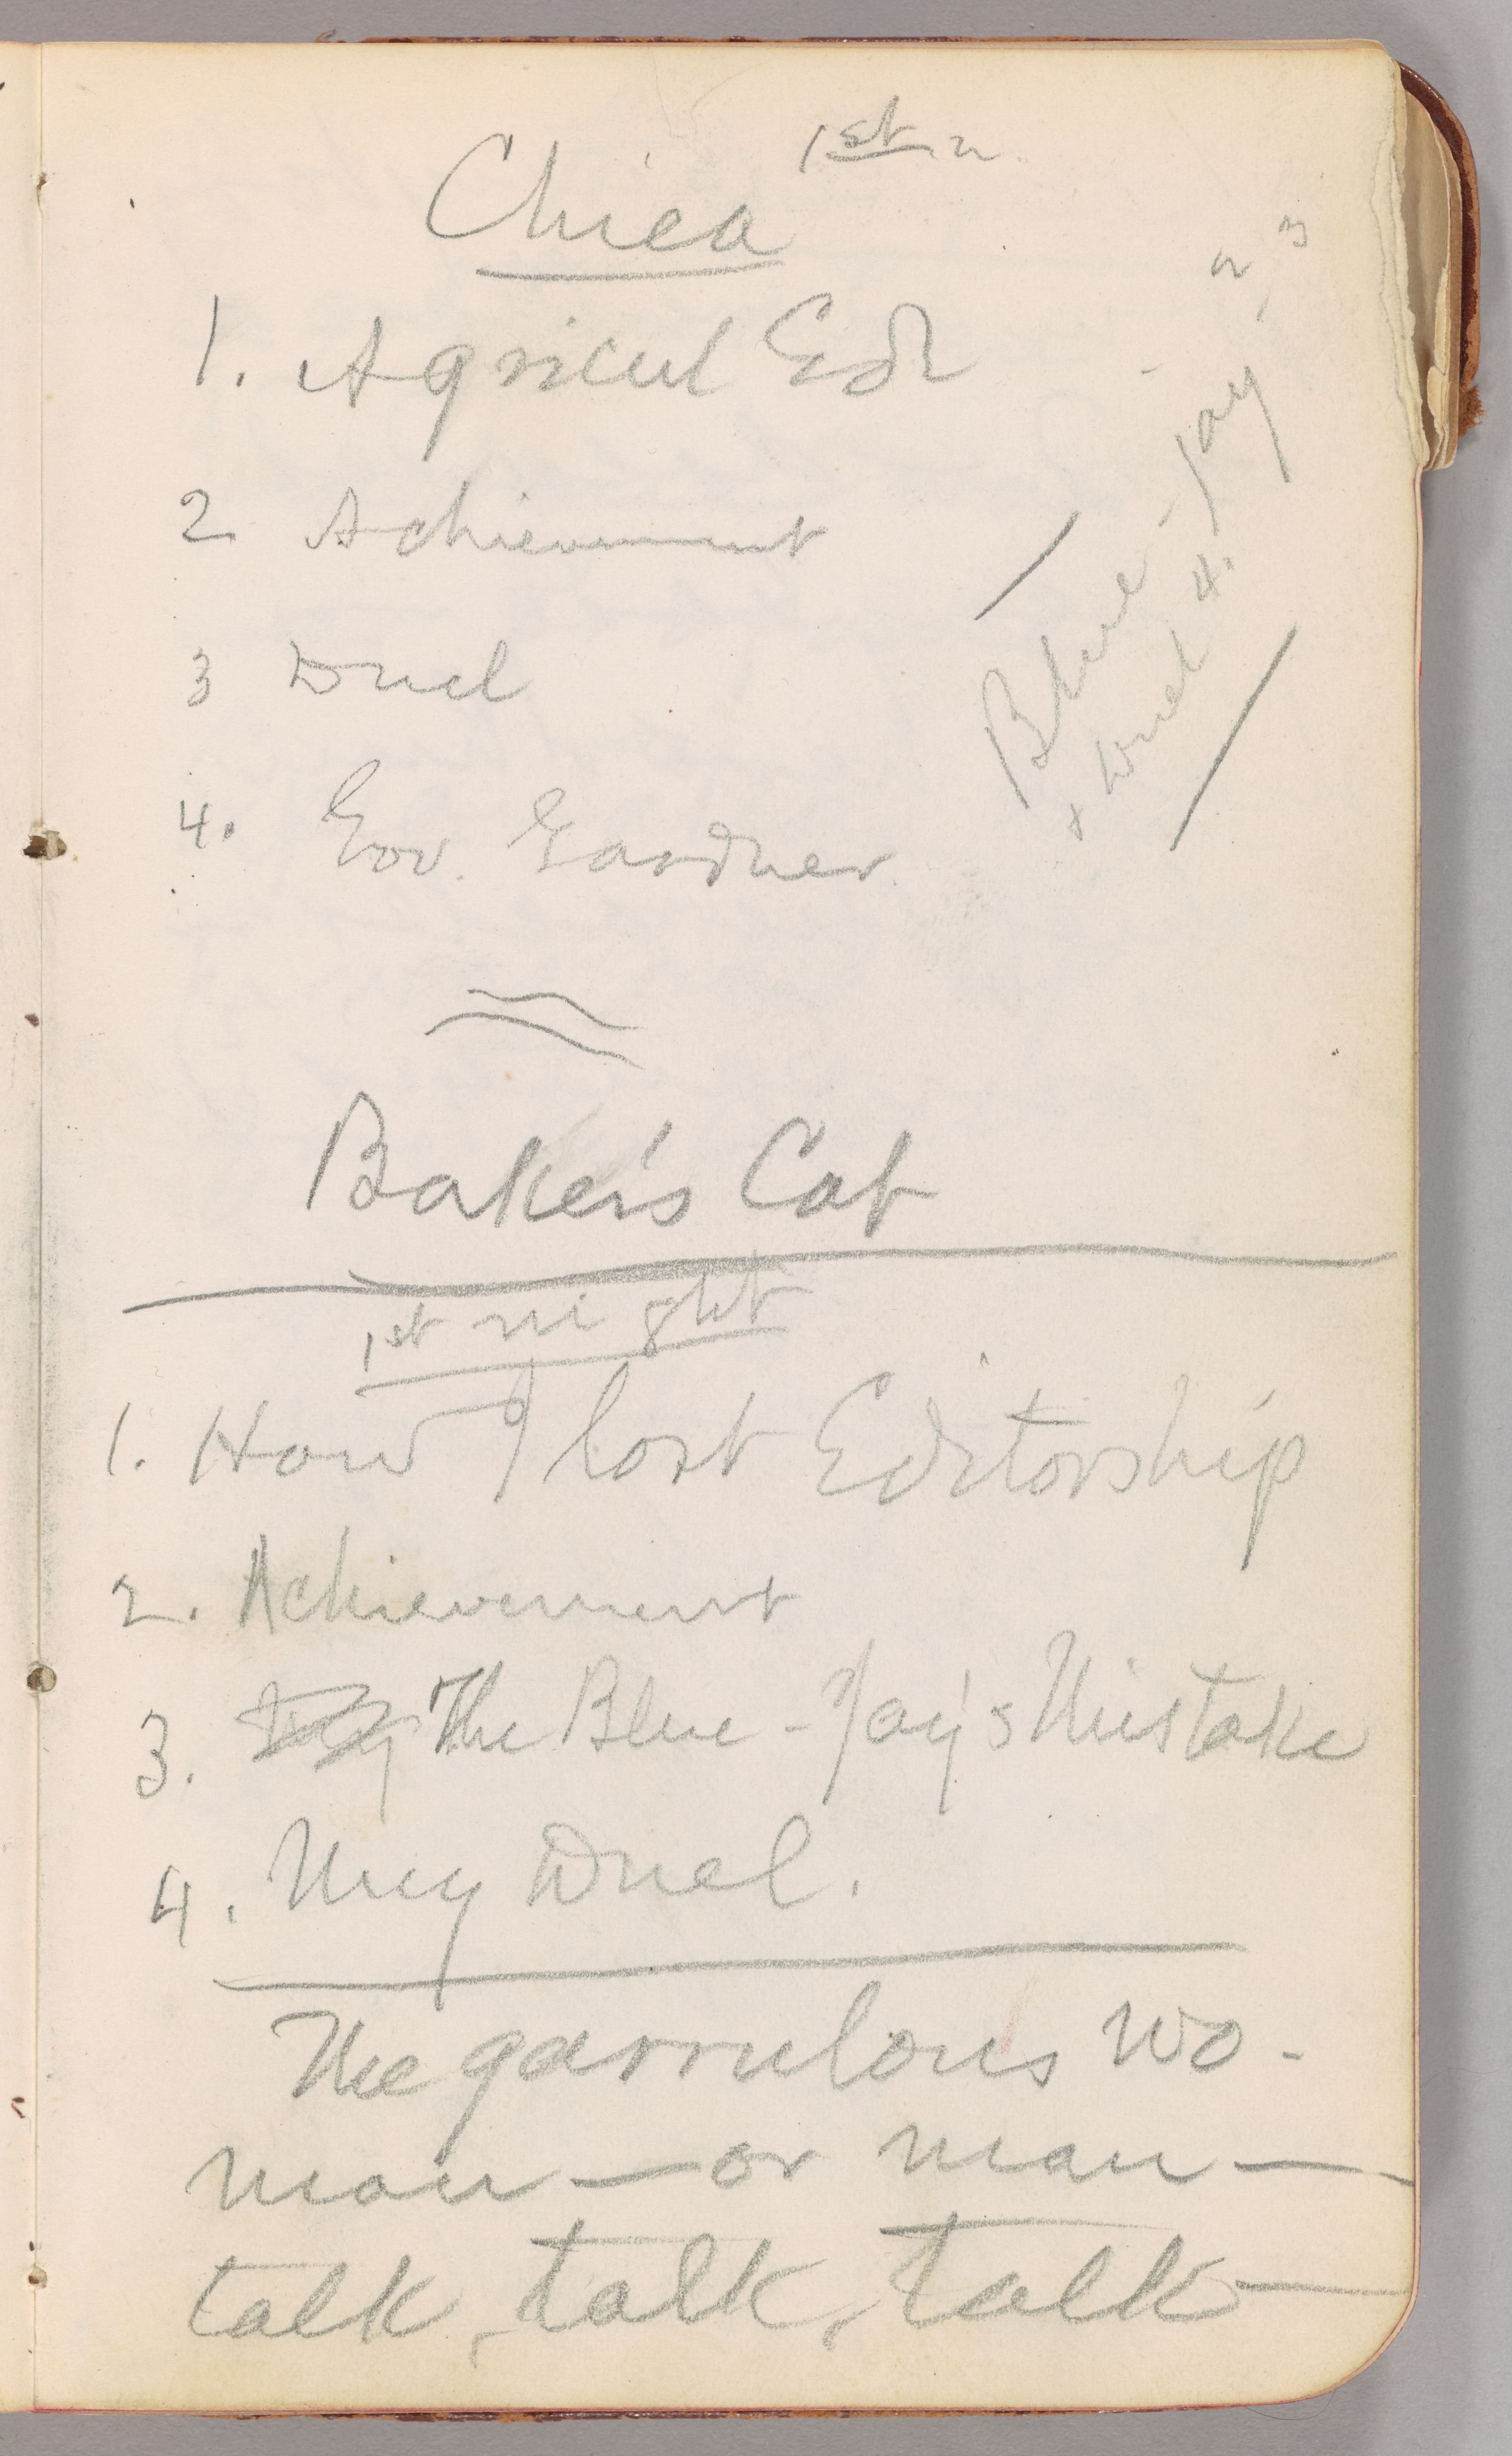 1st n.
Chica
1. Agricul Edr
2. Achievement
3 Duel
4. Gov. Gardner.
Blue-jay, 2, 3
& Duel 4.
Baker's Cat
1st night
1. How I lost Editorship
2. Achievement
3. The Blue-Jay's Mistake
4. My Duel.
The garrulous wo-
man—or man—
talk, talk, talk—